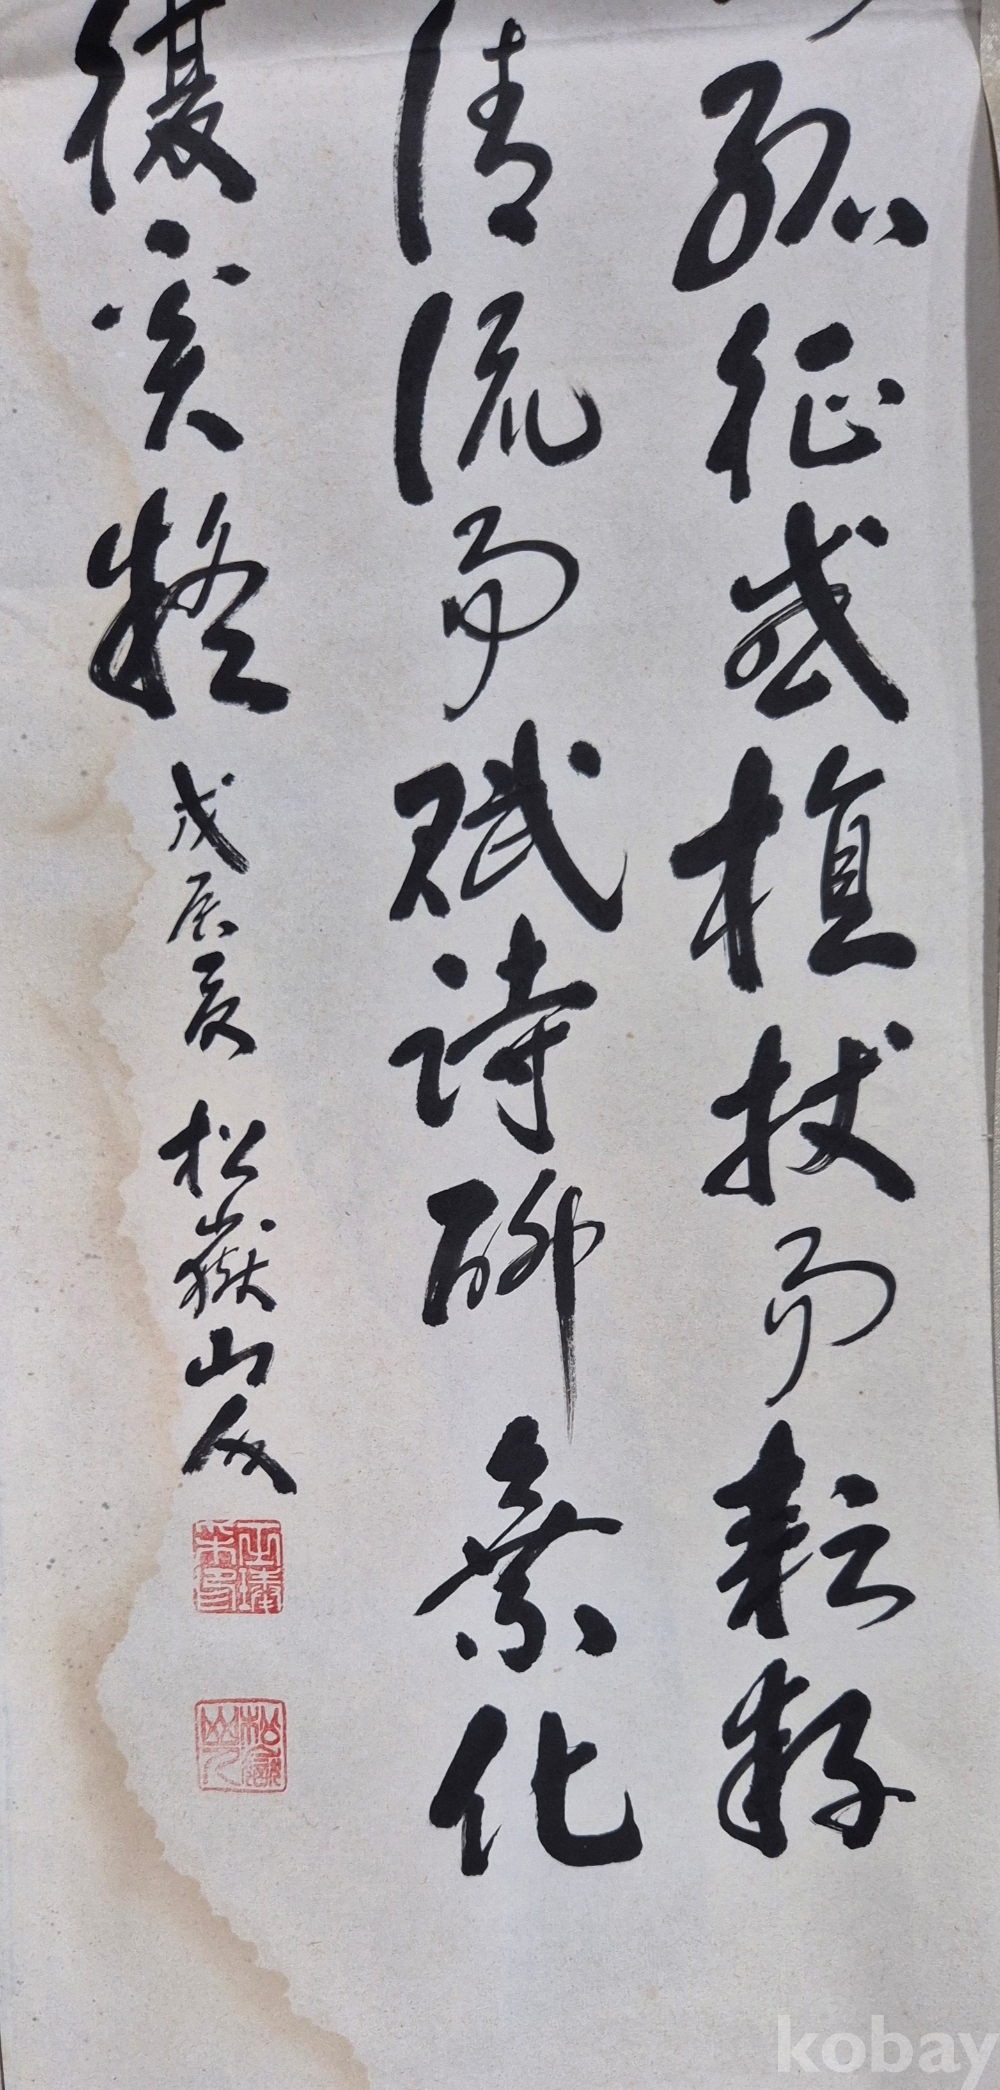 孤征或植杖而耘耔
清流而賦詩聊乘化
復奚疑 戊辰夏 松嶽山人
松嶽山人
kobay